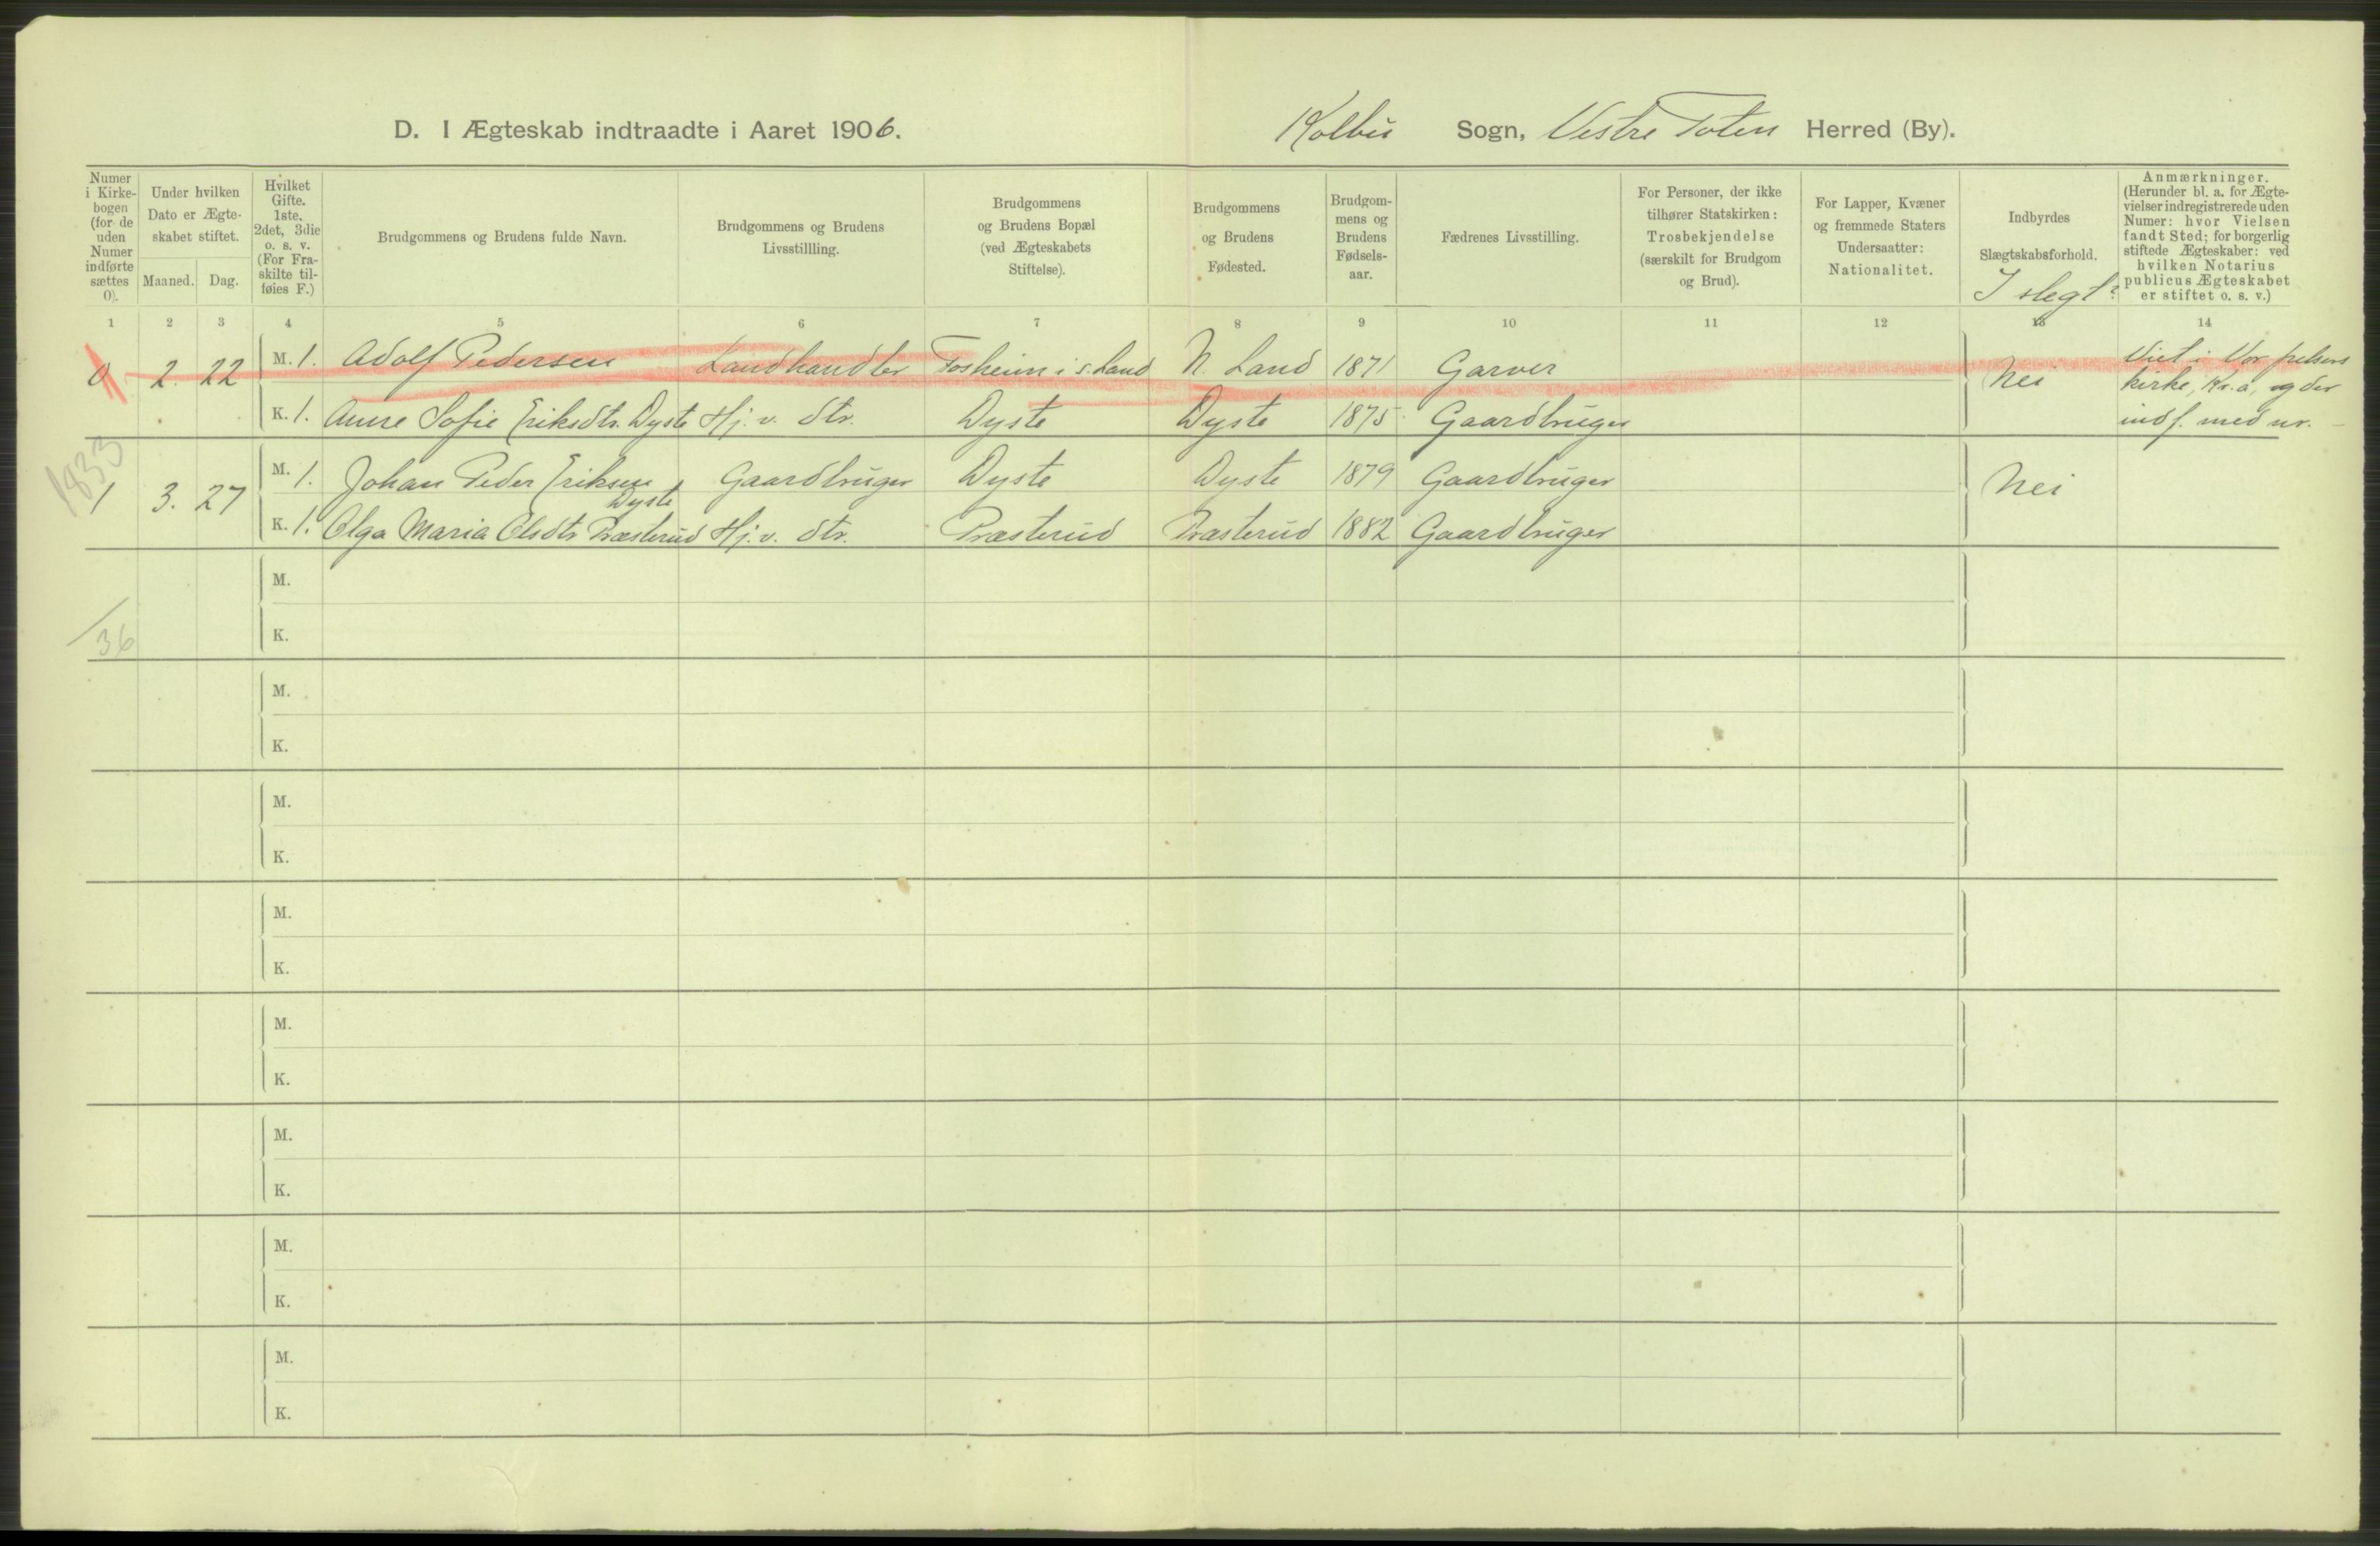 D. I Ægteskab indtraadte i Aaret 1906.
Kolbu Sogn, Vestre Toten Herred (By).
Numer i Kirkebogen (for de uden Numer indførte sættes 0).
Under hvilken Dato er Ægteskabet stiftet.
Maaned. Dag.
Hvilket Gifte. 1ste, 2det, 3die o. s. v. (For Fraskilte tilføies F.)
Brudgommens og Brudens fulde Navn.
Brudgommens og Brudens Livsstillling.
Brudgommens og Brudens Bopæl (ved Ægteskabets Stiftelse).
Brudgommens og Brudens Fødested.
Brudgommens og Brudens Fødselsaar.
Fædrenes Livsstilling.
For Personer, der ikke tilhører Statskirken: Trosbekjendelse (særskilt for Brudgom og Brud).
For Lapper, Kvæner og fremmede Staters Undersaatter: Nationalitet.
Indbyrdes Slægtskabsforhold.
I slegt?
Anmærkninger. (Herunder bl. a. for Ægtevielser indregistrerede uden Numer: hvor Vielsen fandt Sted; for borgerlig stiftede Ægteskaber: ved hvilken Notarius publicus Ægteskabet er stiftet o. s. v.)
1 2 3 4 5 6 7 8 9 10 11 12 13 14
0 2. 22 M. 1. Adolf Pedersen Landhandler Fosheim i s. Land N. Land 1871 Garver Nei Viet i Vor frelsers
kirke, Kr.a, og der
K. 1. Anne Sofie Eriksdtr. Dyste Hj. v. dtr. Dyste Dyste 1875 Gaardbruger indf. med nr. –
1833
1 3. 27 M. 1. Johan Peder Eriksen Dyste Gaardbruger Dyste Dyste 1879 Gaardbruger Nei
K. 1. Olga Maria Olsdtr Præsterud Hj. v. dtr. Præsterud Præsterud 1882 Gaardbruger
M.
/36 K.
M.
K.
M.
K.
M.
K.
M.
K.
M.
K.
M.
K.
M.
K.